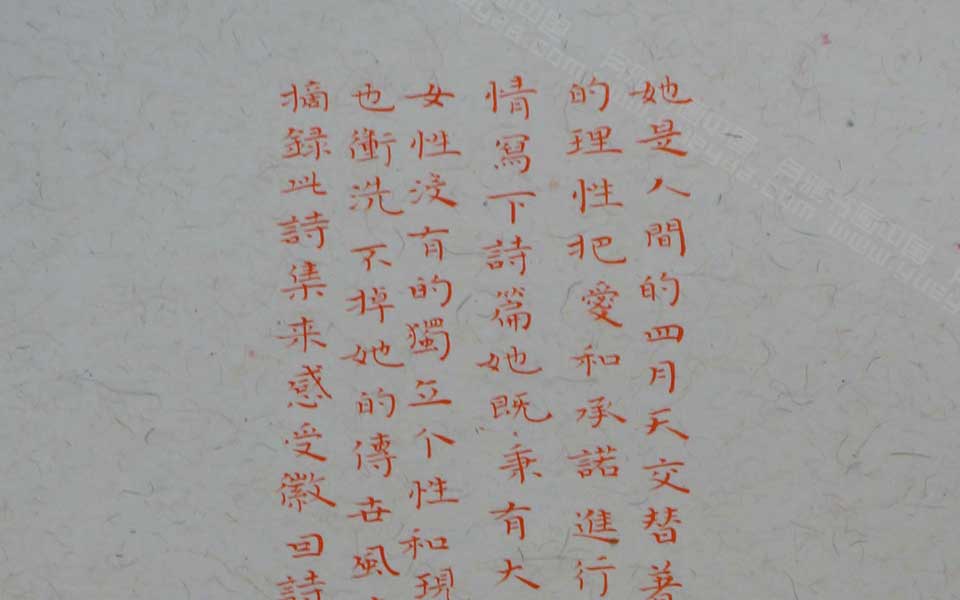 她是人間的四月天交替着
的理性把愛和承諾進行
情寫下詩篇她既秉有大
女性没有的獨立个性和現
也衝洗不掉她的傳世風
摘録此詩集来感受徽因詩